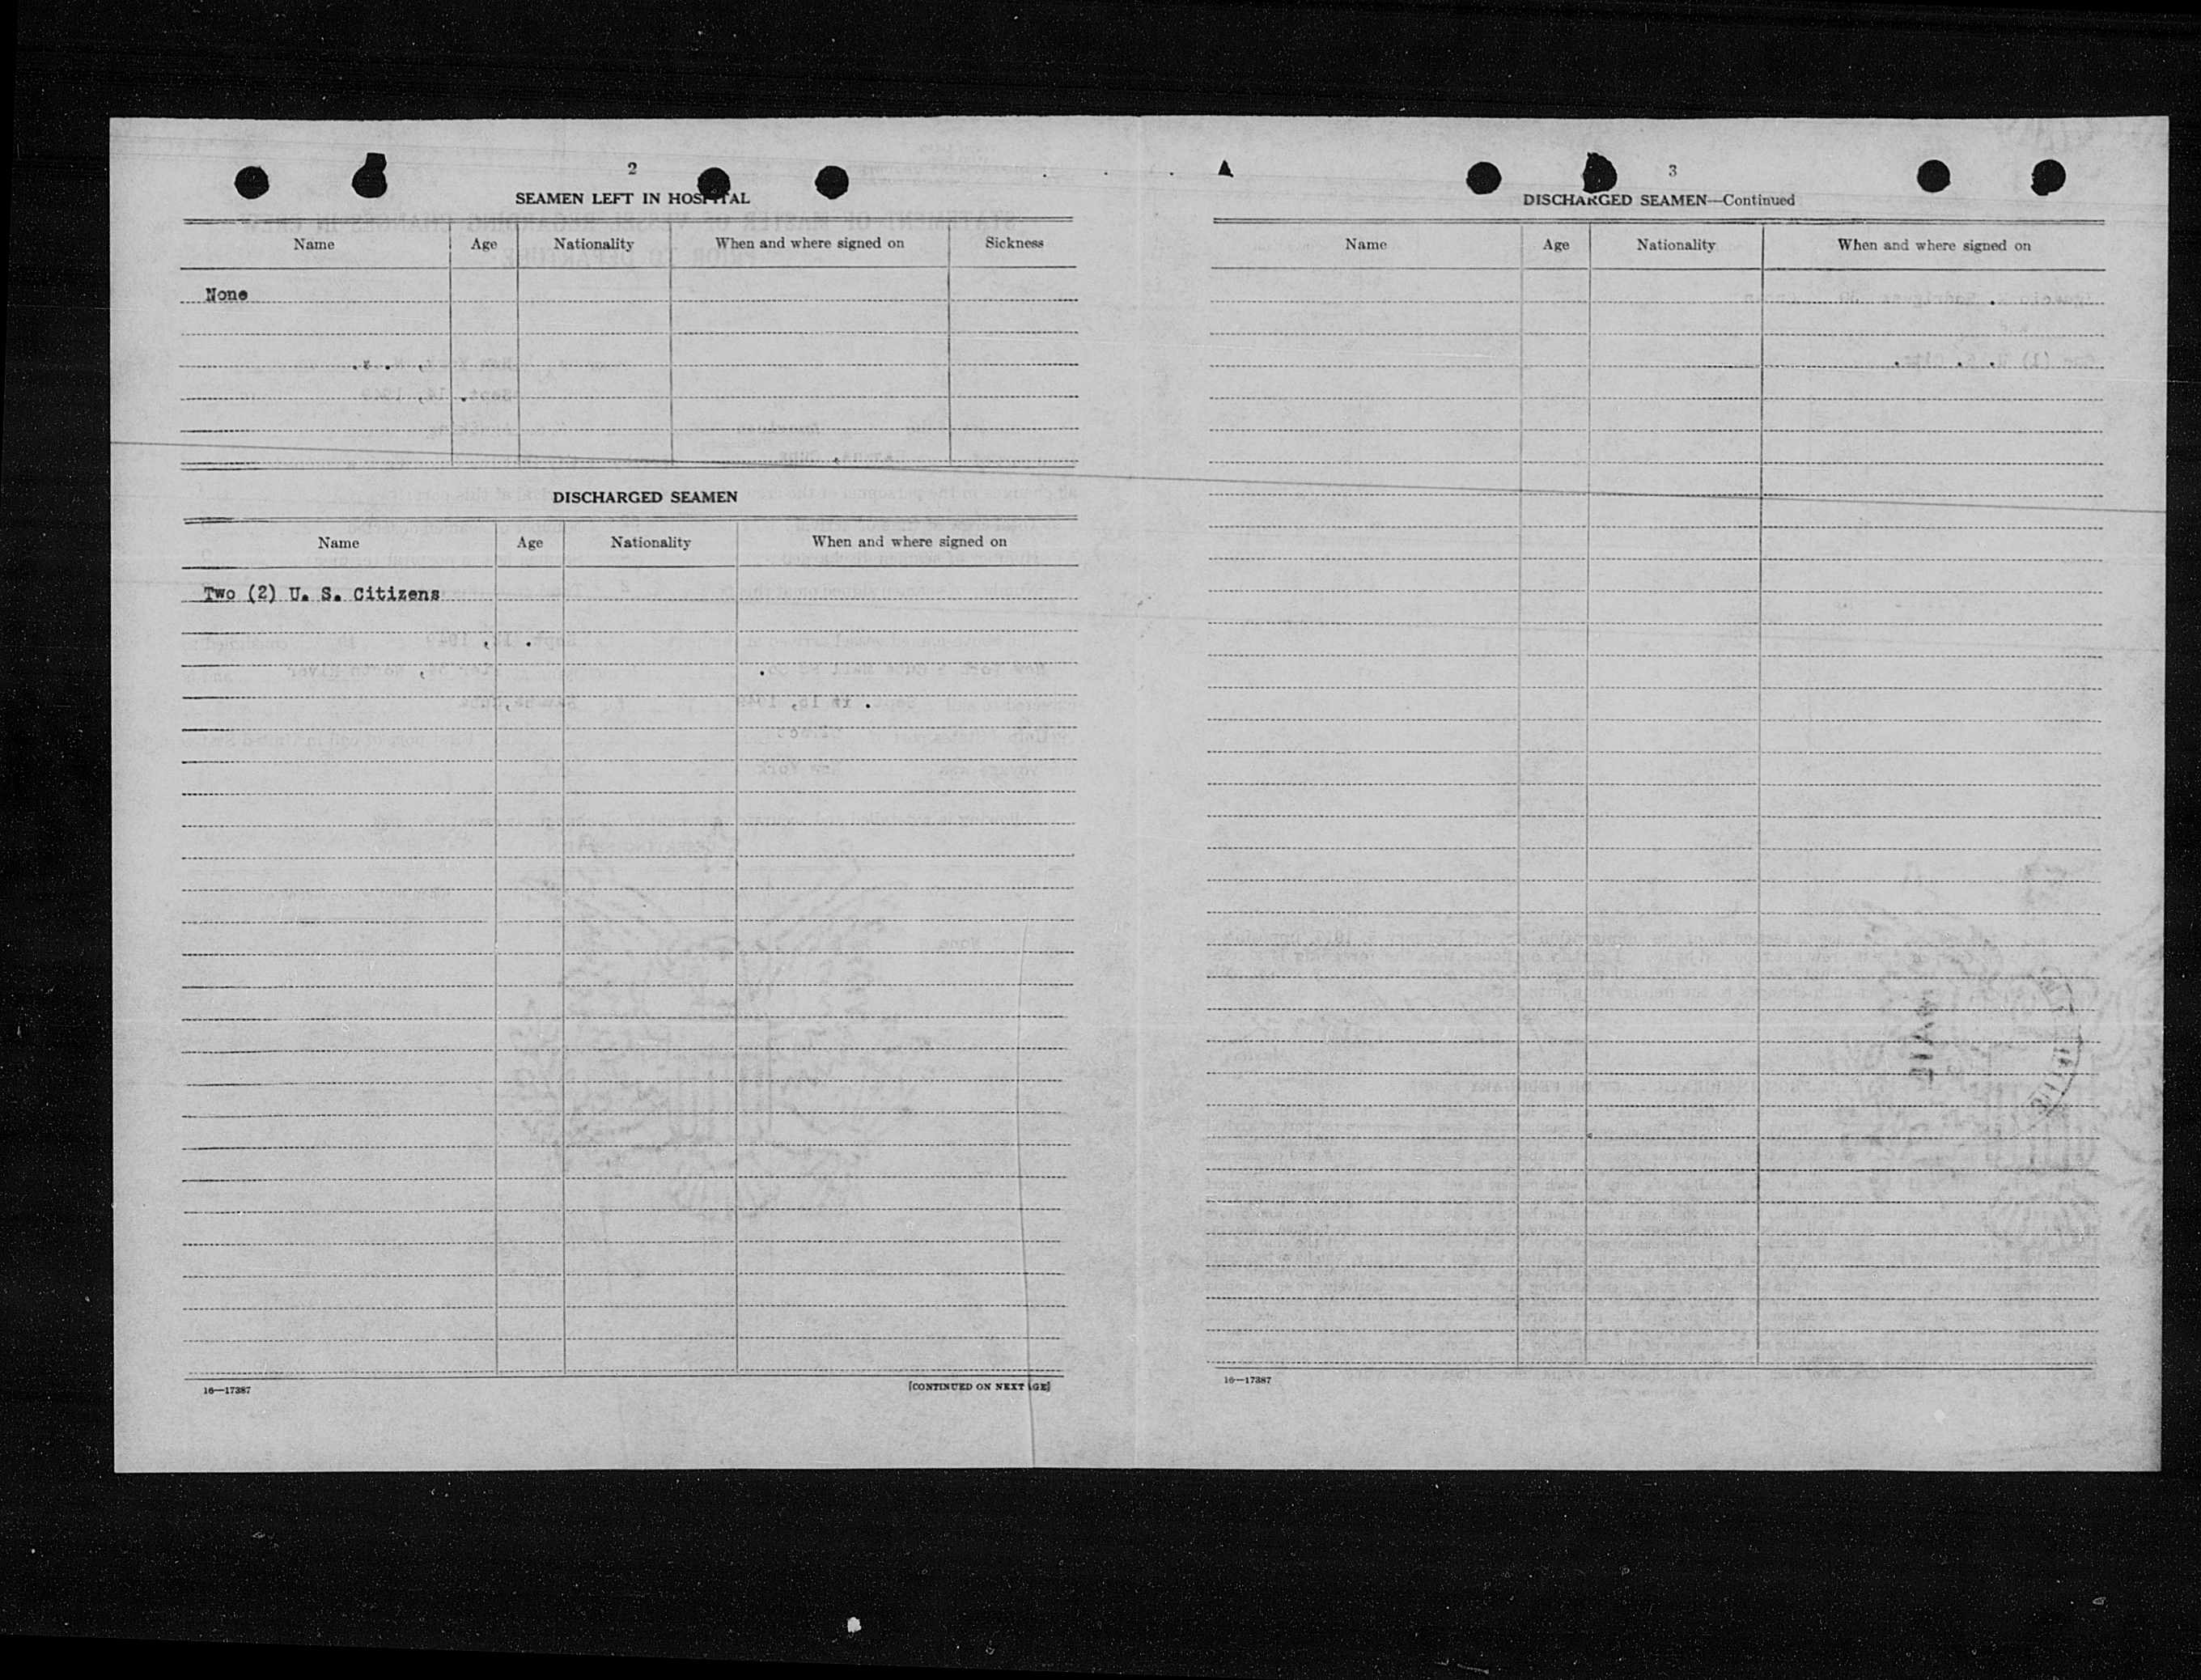 2
SEAMEN LEFT IN HOSPITAL
Name Age Nationality When and where signed on Sickness
None
DISCHARGED SEAMEN
Name Age Nationality When and where signed on
Two (2) U. S. Citizens
16—17387 [CONTINUED ON NEXT
3
DISCHARGED SEAMEN—Continued
Name Age Nationality When and where signed on
16—17387